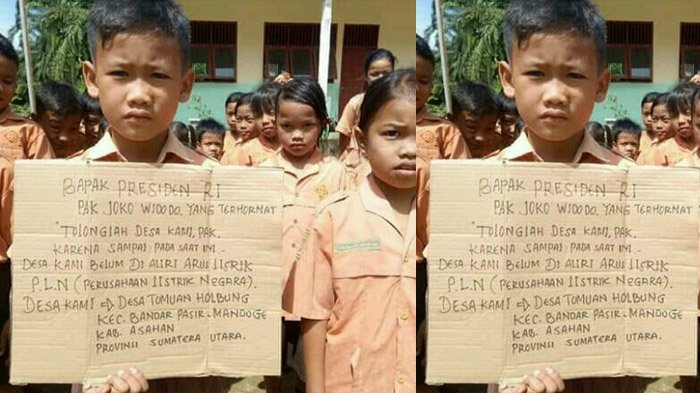 BAPAK PRESIDEN RI
PAK JOKO WIDODO, YANG TERHORMAT
"TOLONGLAH DESA KAMI, PAK.
KARENA SAMPAI PADA SAAT INI
DESA KAMI BELUM DI ALIRI ARUS LISTRIK
PLN (PERUSAHAAN LISTRIK NEGARA).
DESA KAMI ⇨ DESA TOMUAN HOLBUNG
KEC. BANDAR PASIR-MANDOGE
KAB. ASAHAN
PROVINSI SUMATERA UTARA.
BAPAK PRESIDEN RI
PAK JOKO WIDODO, YANG TERHORMAT
"TOLONGLAH DESA KAMI, PAK.
KARENA SAMPAI PADA SAAT INI
DESA KAMI BELUM DI ALIRI ARUS LISTRIK
PLN (PERUSAHAAN LISTRIK NEGARA).
DESA KAMI ⇨ DESA TOMUAN HOLBUNG
KEC. BANDAR PASIR-MANDOGE
KAB. ASAHAN
PROVINSI SUMATERA UTARA.